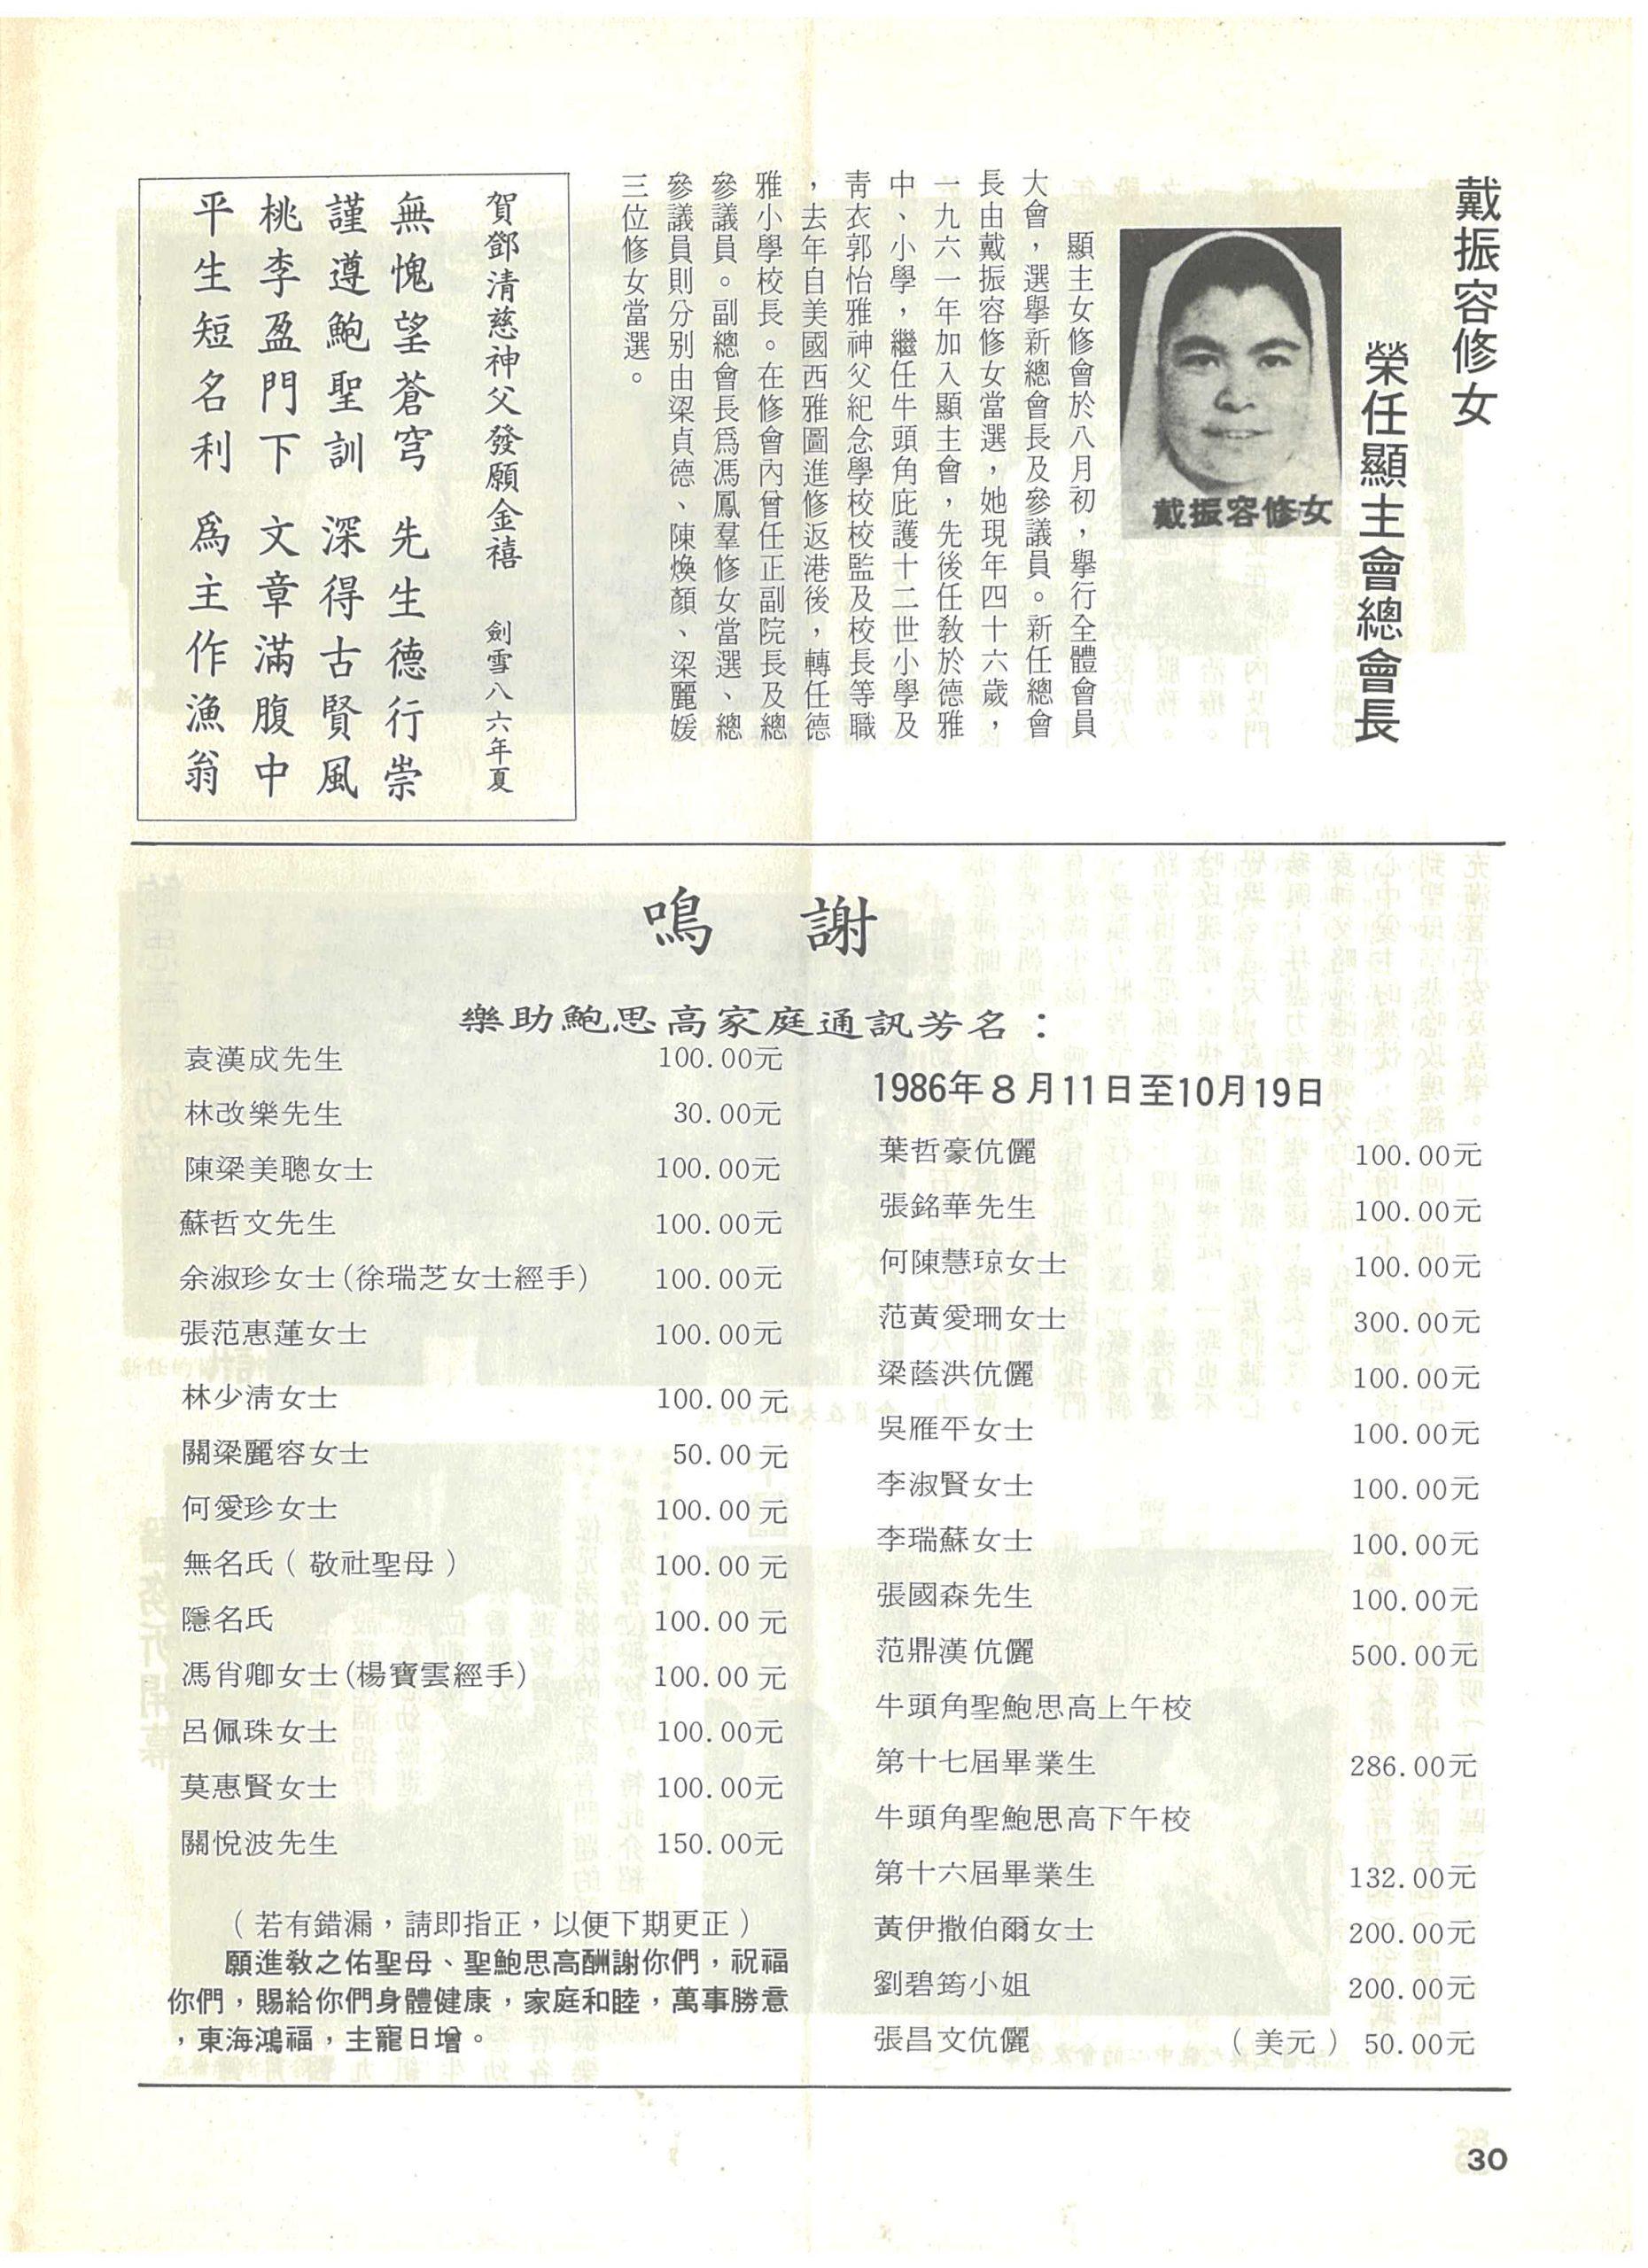 戴振容修女
榮任顯主會總會長
戴振容修女
顯主女修會於八月初，舉行全體會員
大會，選舉新總會長及參議員。新任總會
長由戴振容修女當選，她現年四十六歲，
一九六一年加入顯主會，先後任教於德雅
中、小學，繼任牛頭角庇護十二世小學及
青衣郭怡雅神父紀念學校校監及校長等職
，去年自美國西雅圖進修返港後，轉任德
雅小學校長。在修會內曾任正副院長及總
參議員。副總會長為馮鳳羣修女當選、總
參議員則分別由梁貞德、陳煥顏、梁麗媛
三位修女當選。
賀鄧清慈神父發願金禧　劍雪八六年夏
無愧望蒼穹　先生德行崇
謹遵鮑聖訓　深得古賢風
桃李盈門下　文章滿腹中
平生短名利　爲主作漁翁
鳴　謝
樂助鮑思高家庭通訊芳名：
袁漢成先生 100.00元
林改樂先生 30.00元
陳梁美聰女士 100.00元
蘇哲文先生 100.00元
余淑珍女士(徐瑞芝女士經手) 100.00元
張范惠蓮女士 100.00元
林少清女士 100.00元
關梁麗容女士 50.00元
何愛珍女士 100.00元
無名氏（敬社聖母） 100.00元
隱名氏 100.00元
馮肖卿女士(楊寶雲經手) 100.00元
呂佩珠女士 100.00元
莫惠賢女士 100.00元
關悅波先生 150.00元
（若有錯漏，請即指正，以便下期更正）
願進教之佑聖母、聖鮑思高酬謝你們，祝福
你們，賜給你們身體健康，家庭和睦，萬事勝意
，東海鴻福，主寵日增。
1986年8月11日至10月19日
葉哲豪伉儷 100.00元
張銘華先生 100.00元
何陳慧琼女士 100.00元
范黃愛珊女士 300.00元
梁蔭洪伉儷 100.00元
吳雁平女士 100.00元
李淑賢女士 100.00元
李瑞蘇女士 100.00元
張國森先生 100.00元
范鼎漢伉儷 500.00元
牛頭角聖鮑思高上午校
第十七屆畢業生 286.00元
牛頭角聖鮑思高下午校
第十六屆畢業生 132.00元
黃伊撒伯爾女士 200.00元
劉碧筠小姐 200.00元
張昌文伉儷 （美元） 50.00元
30